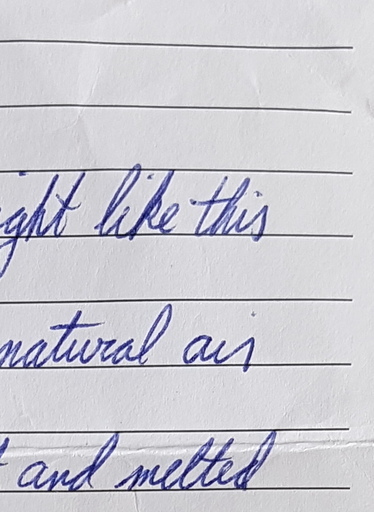 ight like this
natural air
and melted